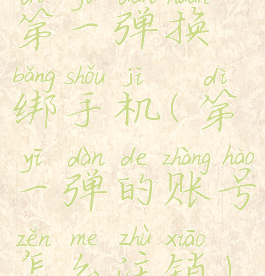 第一弹换
bǎng shǒu jī dì
绑手机(第
yī dàn de zhàng hào
一弹的账号
zěn me zhù xiāo
怎么注销)